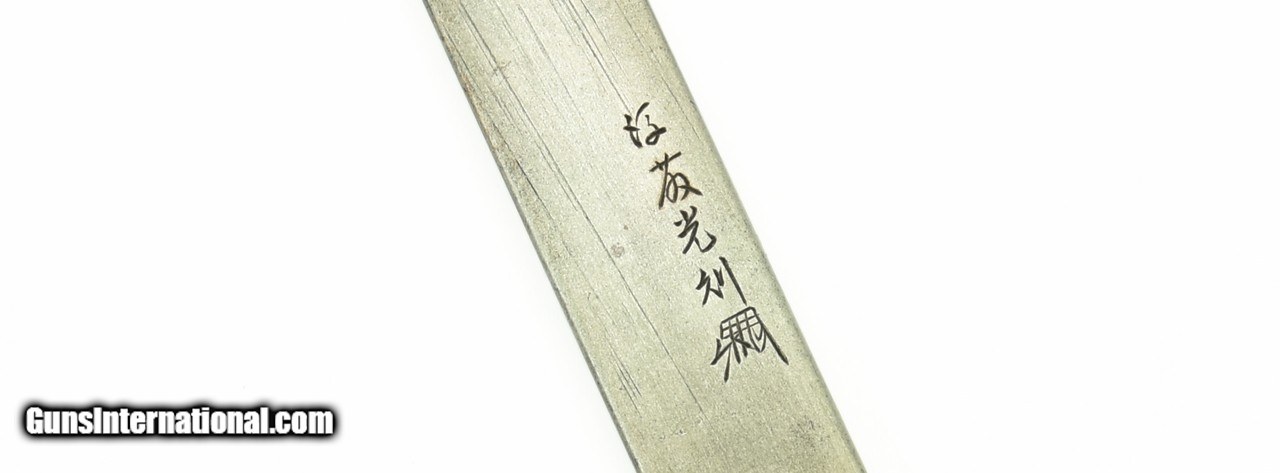 後藤光利
GunsInternational.com